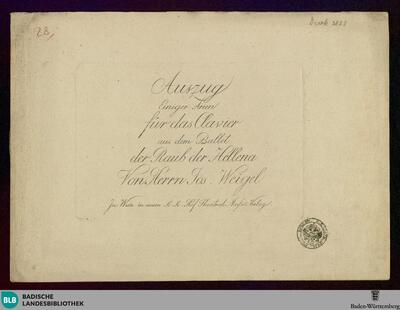 28,
Druck 2823
Auszug
Einiger Arien
für das Clavier
aus dem Ballet
der Raub der Hellena
Von Herrn Jos. Weigel
In Wien in neuen K. K. Hof Theatral Musik Verlag
BLB
BADISCHE
LANDESBIBLIOTHEK
Baden-Württemberg